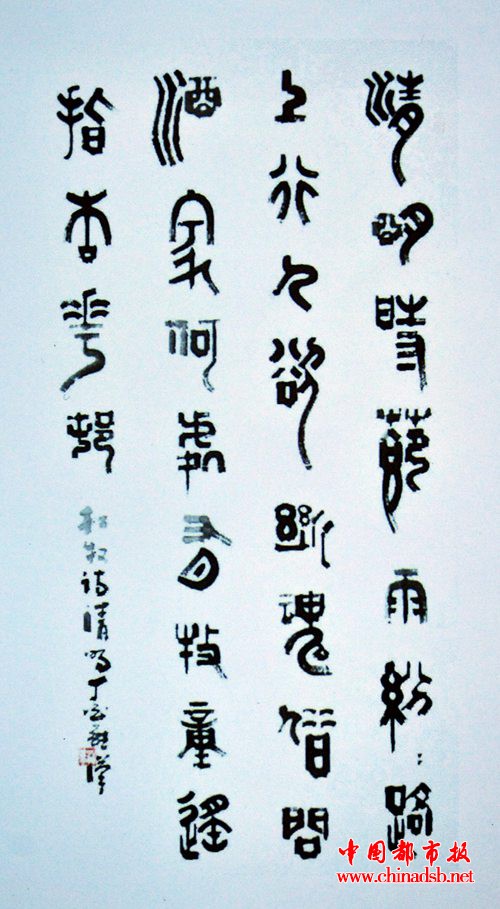 清明時節雨紛〻路
上行人欲斷魂借問
酒家何處有牧童遙
指杏花邨
杜牧诗清明丁
中国都市报
www.chinadsb.net